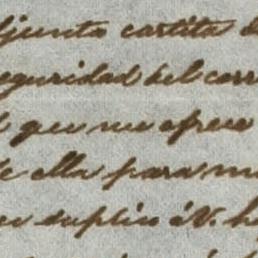 djunta cartita d
seguridad del corr
que me ofrece
de ella para m
suplico á V. h